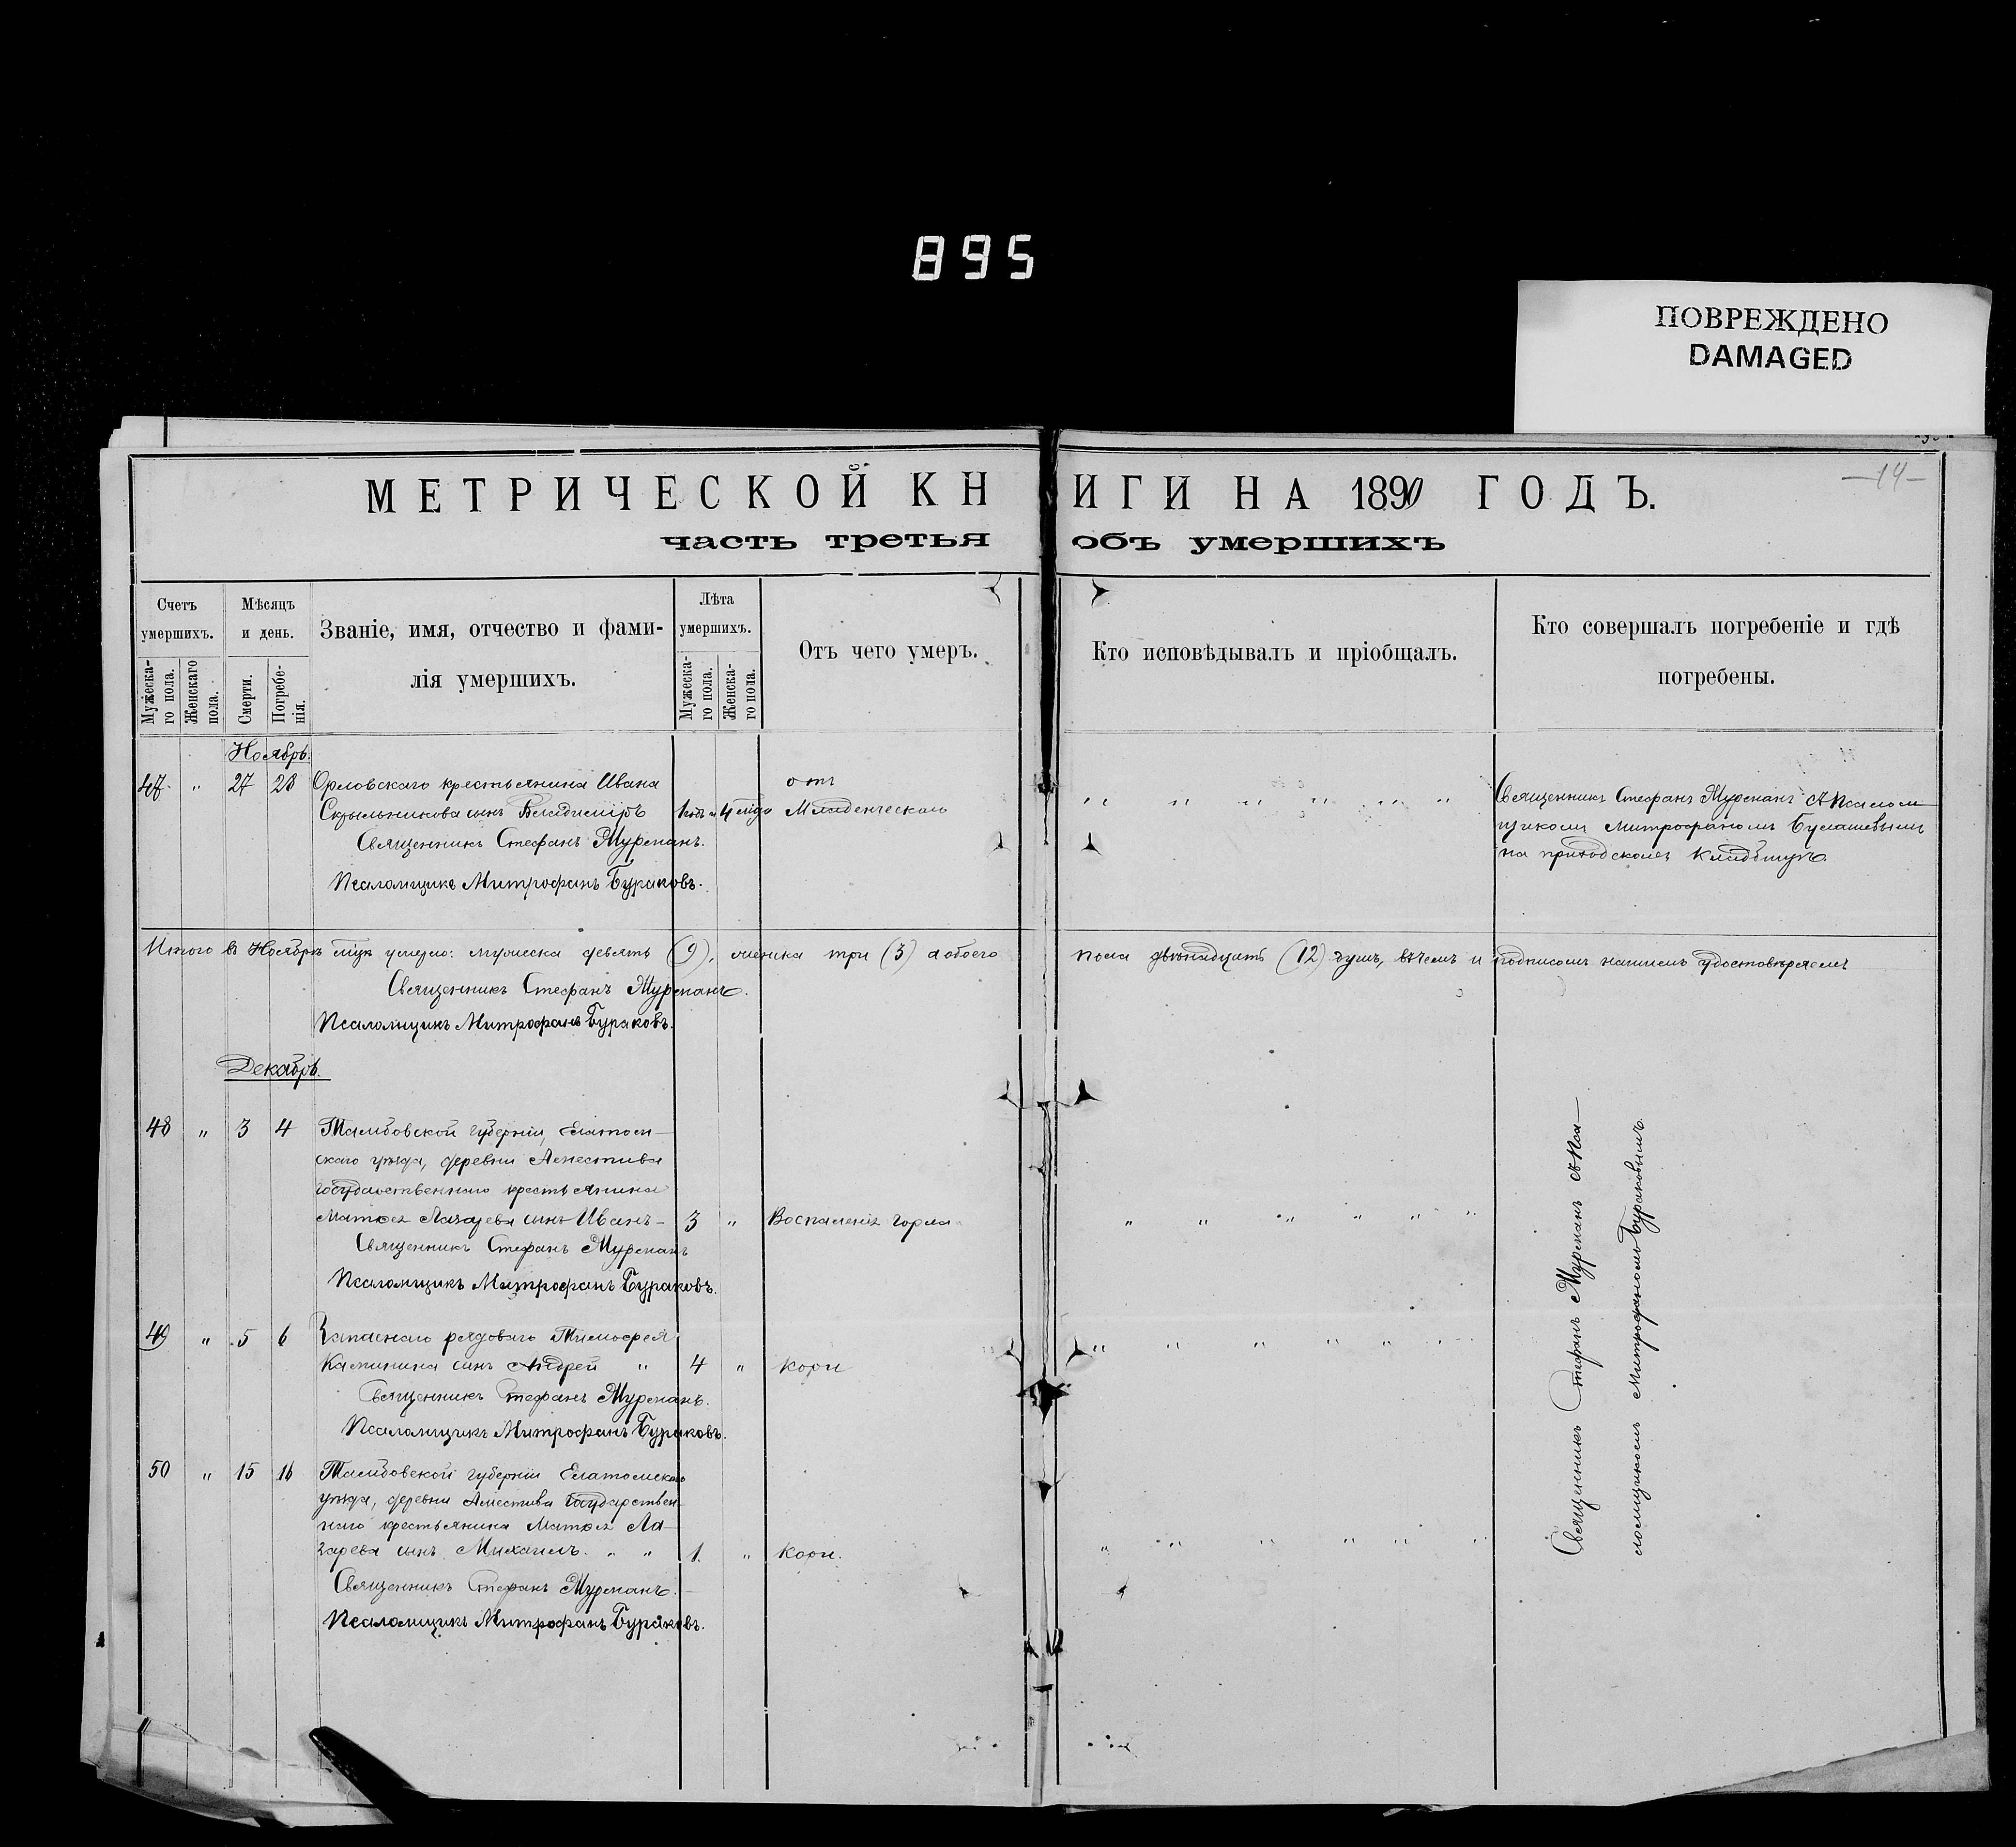 895
ПОВРЕЖДЕНО
DAMAGED
—14—
МЕТРИЧЕСКОЙ КНИГИ НА 1890 ГОДЪ.
часть третья объ умершихъ
Счетъ умершихъ.
Мужеска-го пола.
Женскаго пола.
Мѣсяцъ и день.
Смерти.
Погребе-нія.
Званіе, имя, отчество и фами-
лія умершихъ.
Лѣта умершихъ.
Мужеска-го пола.
Женска-го пола.
Отъ чего умеръ.
Кто исповѣдывалъ и пріобщалъ.
Кто совершалъ погребеніе и гдѣ
погребены.
Ноябрь.
47 " 27 28 Орловскаго крестьянина Ивана
Скрыльникова сынъ Владиміръ
отъ
Младенческой
" " " " " "
Священникъ Стефанъ Мурепанъ съ Псалом
щикомъ Митрофаномъ
на приходскомъ кладбищѣ.
Священникъ Стефанъ Мурепанъ.
Псаломщикъ Митрофанъ Бураковъ.
Итого въ Ноябрѣ умерло: мужеска девять (9), женска три (3) а обоего пола двѣнадцать (12) душъ, въ чемъ и подписомъ нашимъ удостовѣряемъ
Священникъ Стефанъ Мурепанъ.
Псаломщикъ Митрофанъ Бураковъ.
Декабрь.
48 " 3 4 Тамбовской губерніи, Елатом-
скаго уѣзда, деревни
государственнаго крестьянина
Матѳея Лазарева сынъ Иванъ — 3 " Воспаленія горла
" " " " " "
Священникъ Стефанъ Мурепанъ
Псаломщикъ Митрофанъ Бураковъ.
49 " 5 6 Запаснаго рядоваго Тимофея
Калинина сынъ Андрей " 4 " Кори
" " " " " "
Священникъ Стефанъ Мурепанъ.
Псаломщикъ Митрофанъ Бураковъ.
50 " 15 16 Тамбовской губерніи Елатомскаго
уѣзда, деревни государствен-
наго крестьянина Матѳея Ла-
зарева сынъ Михаилъ. " " 1. " Кори.
" " " " " "
Священникъ Стефанъ Мурепанъ.
Псаломщикъ Митрофанъ Бураковъ.
Священникъ Стефанъ Мурепанъ съ Пса-
ломщикомъ Митрофаномъ Бураковымъ.